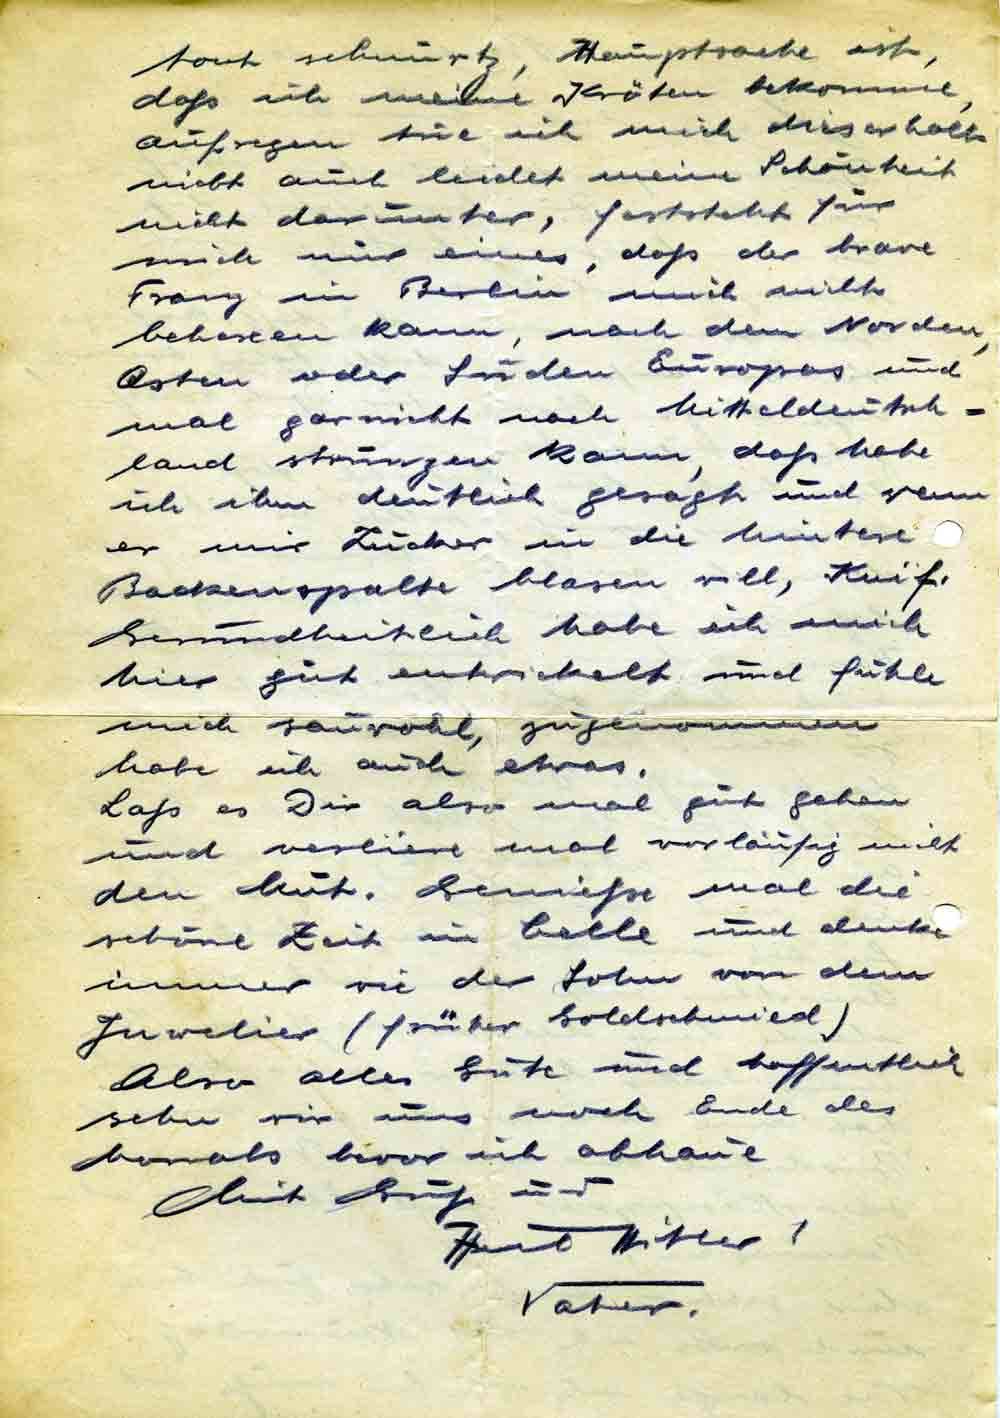 tout schnurtz, Hauptsache ist,
daß ich meine Kröten bekomme,
aufregen tue ich mich dieserhalb
nicht auch leidet meine Schönheit
nicht darunter, feststeht für
mich nur eines, daß der brave
Franz in Berlin mich nicht
behexen kann, nach dem Norden,
Osten oder Süden Europas und
mal garnicht nach Mitteldeutsch=
land strunzen kann, daß habe
ich ihm deutlich gesagt und wenn
er mir Zucker in die hintere
Backenspalte blasen will, Kniff.
Gesundheitlich habe ich mich
hier gut entwickelt und fühle
mich sauwohl, zugenommen
habe ich auch etwas.
Laß es Dir also mal gut gehen
und verliere mal vorläufig nicht
den Mut. Genieße mal die
schöne Zeit in Celle und denke
immer wie der Sohn von dem
Juwelier (früher Goldschmied)
Also alles Gute und hoffentlich
sehn wir uns noch Ende des
Monats bevor ich abhaue
Mit Gruß und
Heil Hitler!
Vater.